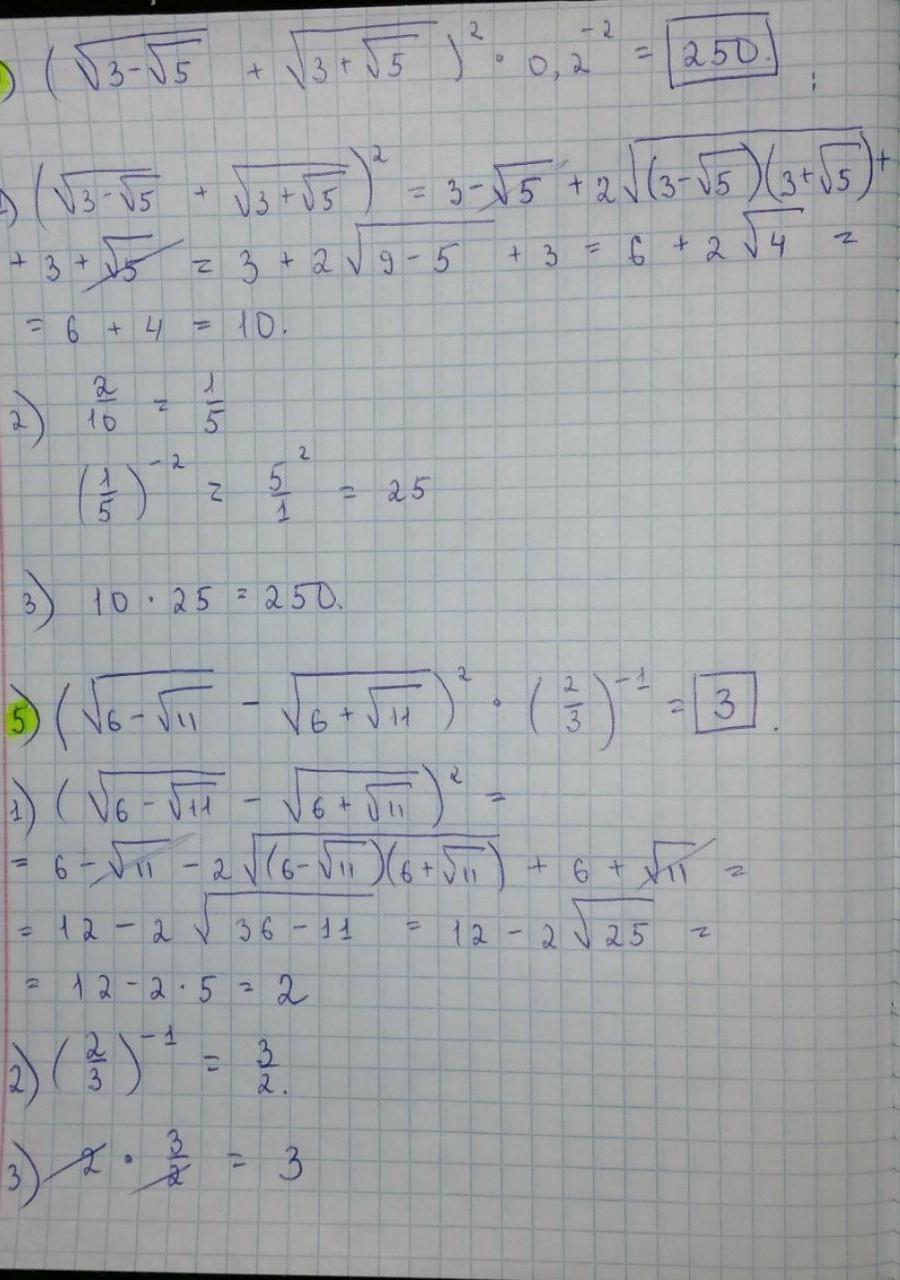 ) (√(3-√5) + √(3+√5))² · 0,2⁻² = 250. ;
1) (√(3-√5) + √(3+√5))² = 3-√5 + 2√((3-√5)(3+√5)) +
+ 3 + √5 = 3 + 2√(9-5) + 3 = 6 + 2√4 =
= 6 + 4 = 10.
2) 2/10 = 1/5
(1/5)⁻² = 5²/1 = 25
3) 10 · 25 = 250.
5) (√(6-√11) - √(6+√11))² · (2/3)⁻¹ = 3.
1) (√(6-√11) - √(6+√11))² =
= 6 - √11 - 2√((6-√11)(6+√11)) + 6 + √11 =
= 12 - 2√(36-11) = 12 - 2√25 =
= 12 - 2 · 5 = 2
2) (2/3)⁻¹ = 3/2.
3) 2 · 3/2 = 3